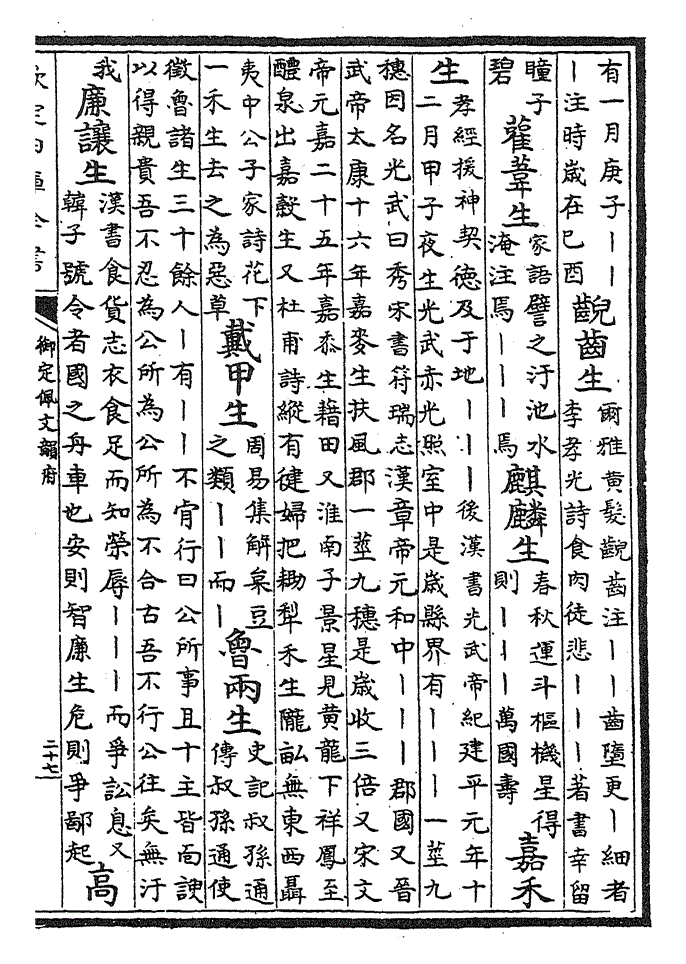 有一月庚子｜｜
｜注時歲在己酉
齯齒生
爾雅黃髮齯齒注｜｜齒墮更｜細者
李孝光詩食肉徒悲｜｜｜著書幸留
瞳子
碧
雚葦生
家語譬之汙池水
淹注焉｜｜｜焉
麒麟生
春秋運斗樞機星得
則｜｜｜萬國壽
嘉禾
生
孝經援神契德及于地｜｜｜後漢書光武帝紀建平元年十
二月甲子夜生光武赤光照室中是歲縣界有｜｜｜一莖九
穗因名光武曰秀宋書符瑞志漢章帝元和中｜｜｜郡國又晉
武帝太康十六年嘉麥生扶風郡一莖九穗是歲收三倍又宋文
帝元嘉二十五年嘉黍生藉田又淮南子景星見黃龍下祥鳳至
醴泉出嘉穀生又杜甫詩縱有健婦把鋤犁禾生隴畝無東西聶
夷中公子家詩花下
一禾生去之為惡草
戴甲生
周易集解枲豆
之類｜｜而｜
魯兩生
史記叔孫通
傳叔孫通使
徵魯諸生三十餘人｜有｜｜不肯行曰公所事且十主皆面諛
以得親貴吾不忍為公所為公所為不合古吾不行公往矣無汙
我
廉讓生
漢書食貨志衣食足而知榮辱｜｜｜而爭訟息又
韓子號令者國之舟車也安則智廉生危則爭鄙起
高
欽定四庫全書
御定佩文韻府
二十七